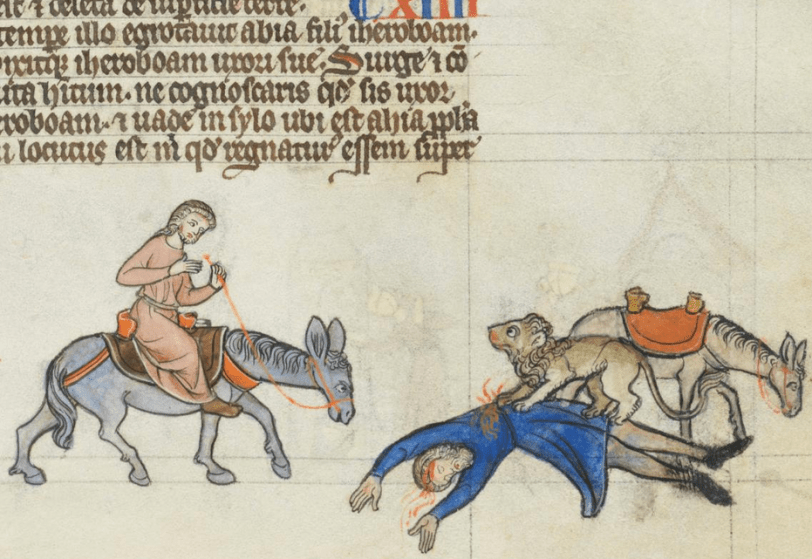 & deleta de supficie terre. CXIIII
tempe illo egrotauit abia fili' iheroboam.
dixitq; iheroboam uxori sue. Surge ⁊ cō
uta hitum. ne cognoscaris qd' sis uxor
eroboam. ⁊ uade in sylo ubi est ahia ppha
i locutus est m̄ qd' regnatur' essem super